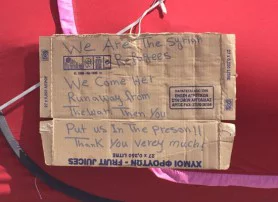 We Are The Syrian
Refugees
We Come Her
Runaway from
The war Then you
Put us In The Preson!!
Thank you verey much
ΧΥΜΟΙ ΦΡΟΥΤΩΝ - FRUIT JUICES
27 X 0,250 LITRE